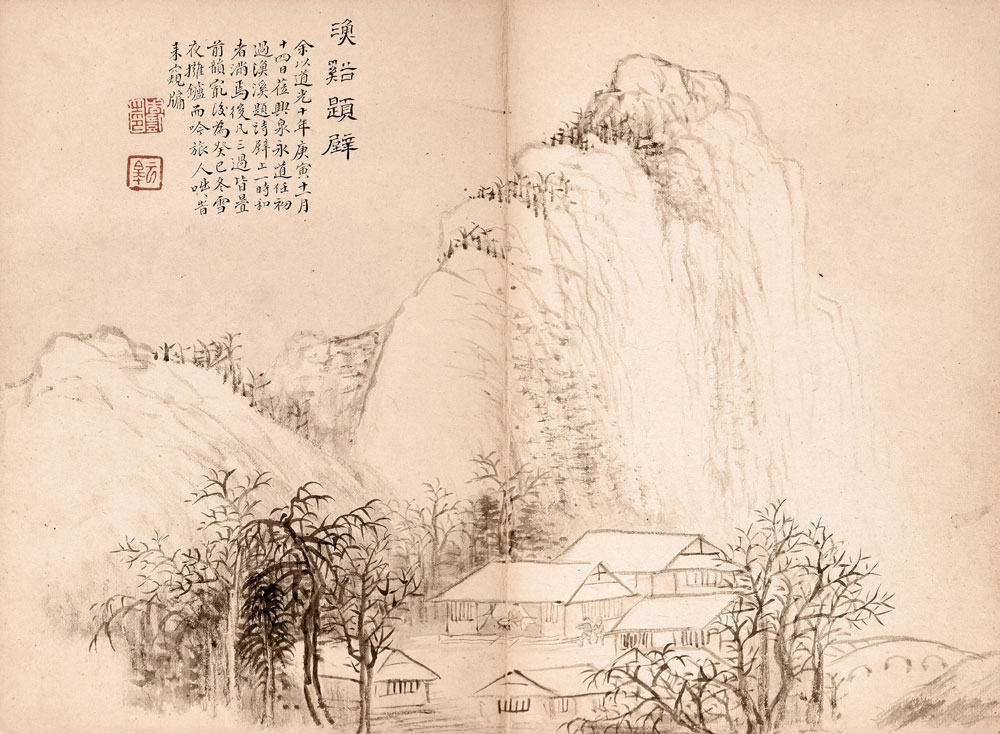 漁谿題壁
余以道光十年庚寅十一月
十四日莅興泉永道任初
過漁溪題詩壁上一時和
者滿焉後凡三過皆疊
前韻最後為癸巳冬雪
夜擁鑪而吟旅人
來窺牖